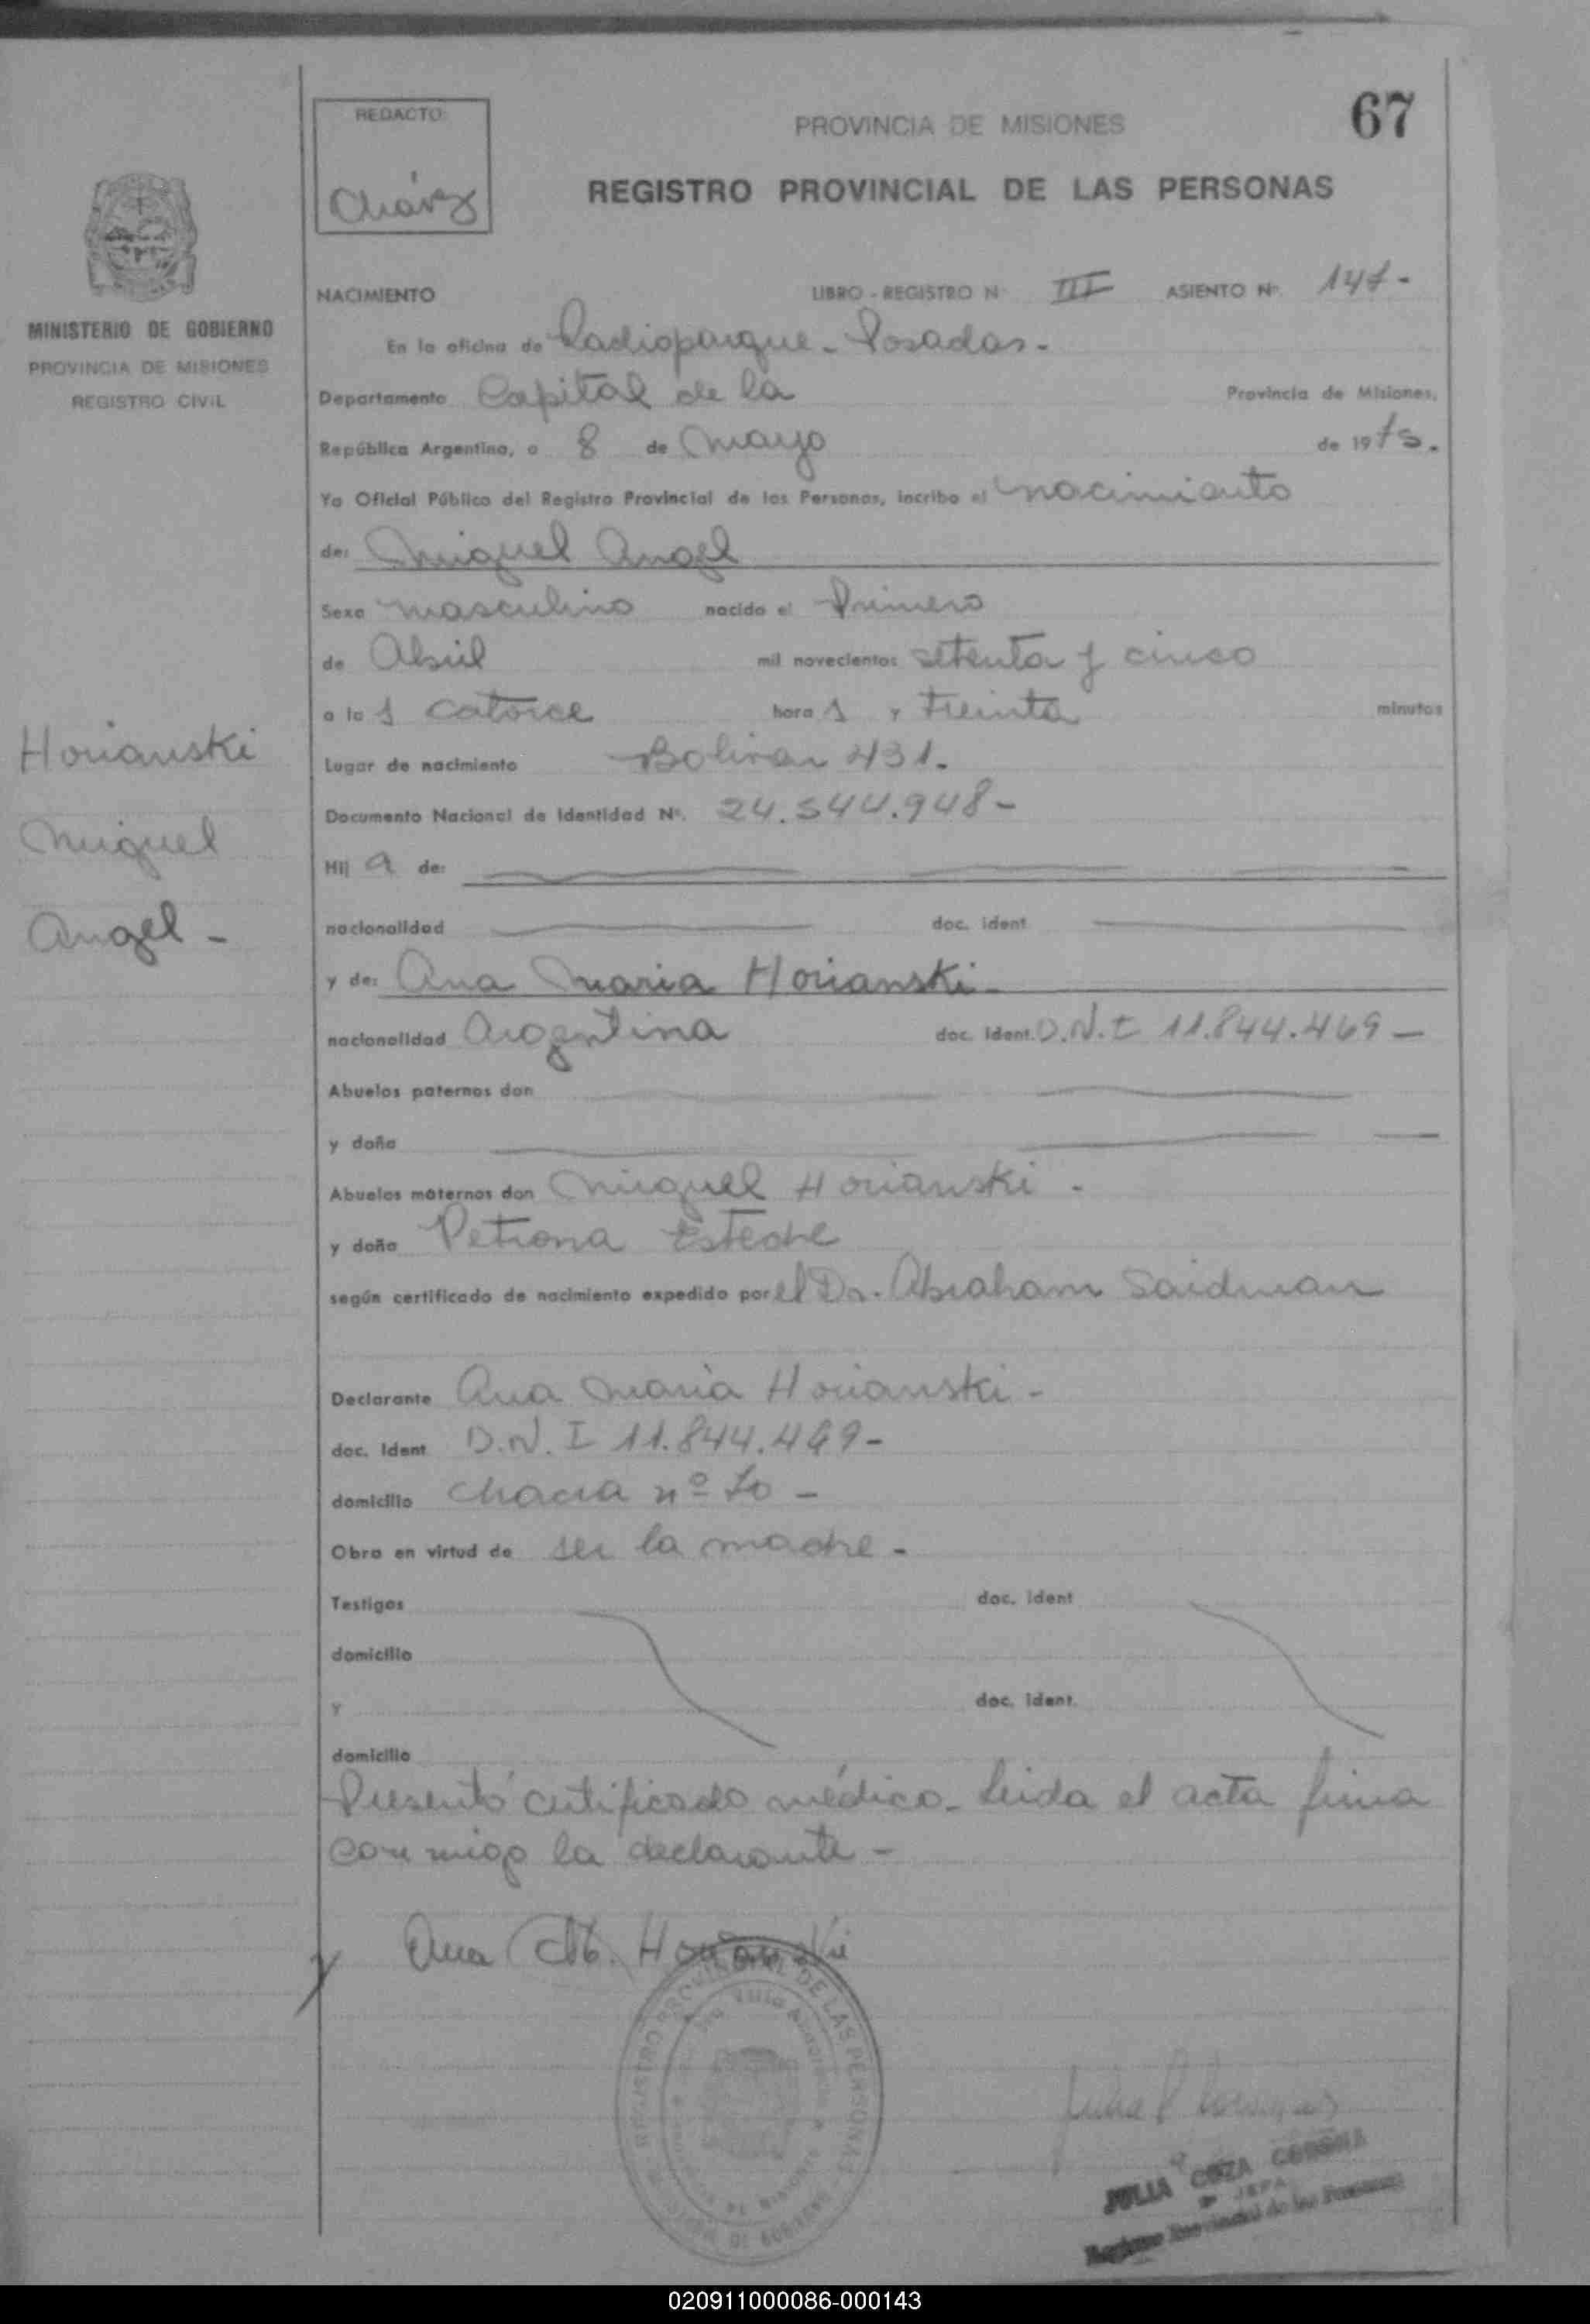 REDACTO:
Chávez
PROVINCIA DE MISIONES
67
REGISTRO PROVINCIAL DE LAS PERSONAS
MINISTERIO DE GOBIERNO
PROVINCIA DE MISIONES
REGISTRO CIVIL
NACIMIENTO LIBRO - REGISTRO N° III ASIENTO N° 147-
En la oficina de Radioparque - Posadas -
Departamento Capital de la Provincia de Misiones,
República Argentina, a 8 de Mayo de 1975.
Yo Oficial Público del Registro Provincial de las Personas, incribo el nacimiento
de: Miguel Angel
Sexo masculino nacido el Primero
de Abril mil novecientos setenta y cinco
a las catorce horas y treinta minutos
Lugar de nacimiento Bolivar 431.
Documento Nacional de Identidad N°. 24.544.948-
Hij a de:
nacionalidad doc. ident.
y de: Ana Maria Horianski -
nacionalidad Argentina doc. ident. D.N.I 11.844.469 -
Abuelos paternos don
y doña
Abuelos maternos don Miguel Horianski -
y doña Petrona Esteche
según certificado de nacimiento expedido por el Dr. Abraham Saidman
Declarante Ana Maria Horianski -
doc. ident. D.N.I 11.844.469-
domicilio Chacra nº 70 -
Obra en virtud de ser la madre -
Testigos doc. ident.
domicilio
y doc. ident.
domicilio
Presentó certificado médico - Leida el acta firma
conmigo la declarante -
Horianski
Miguel
Angel -
Ana M. Horianski
REGISTRO PROVINCIAL DE LAS PERSONAS
JULIA
Registro Provincial de las Personas
020911000086-000143